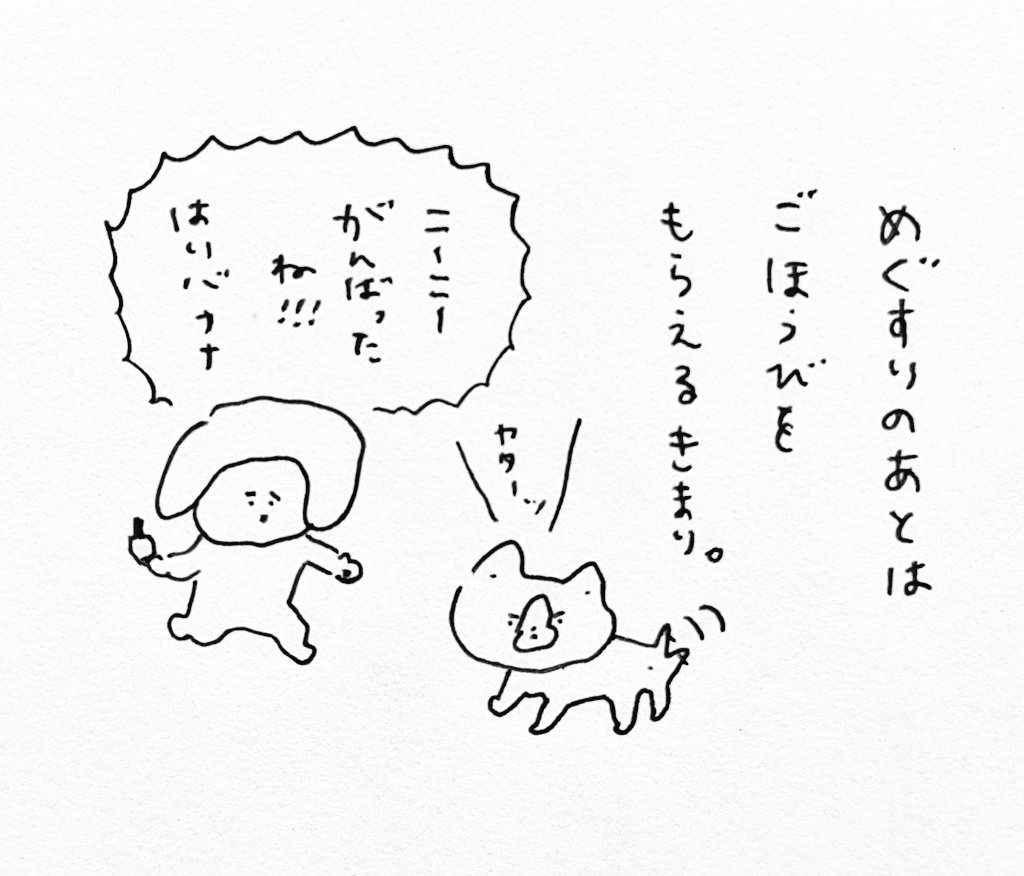 めぐすりのあとは
ごほうびを
もらえるきまり。
ニーニー
がんばった
ね!!!
はいバナナ
ヤターッ